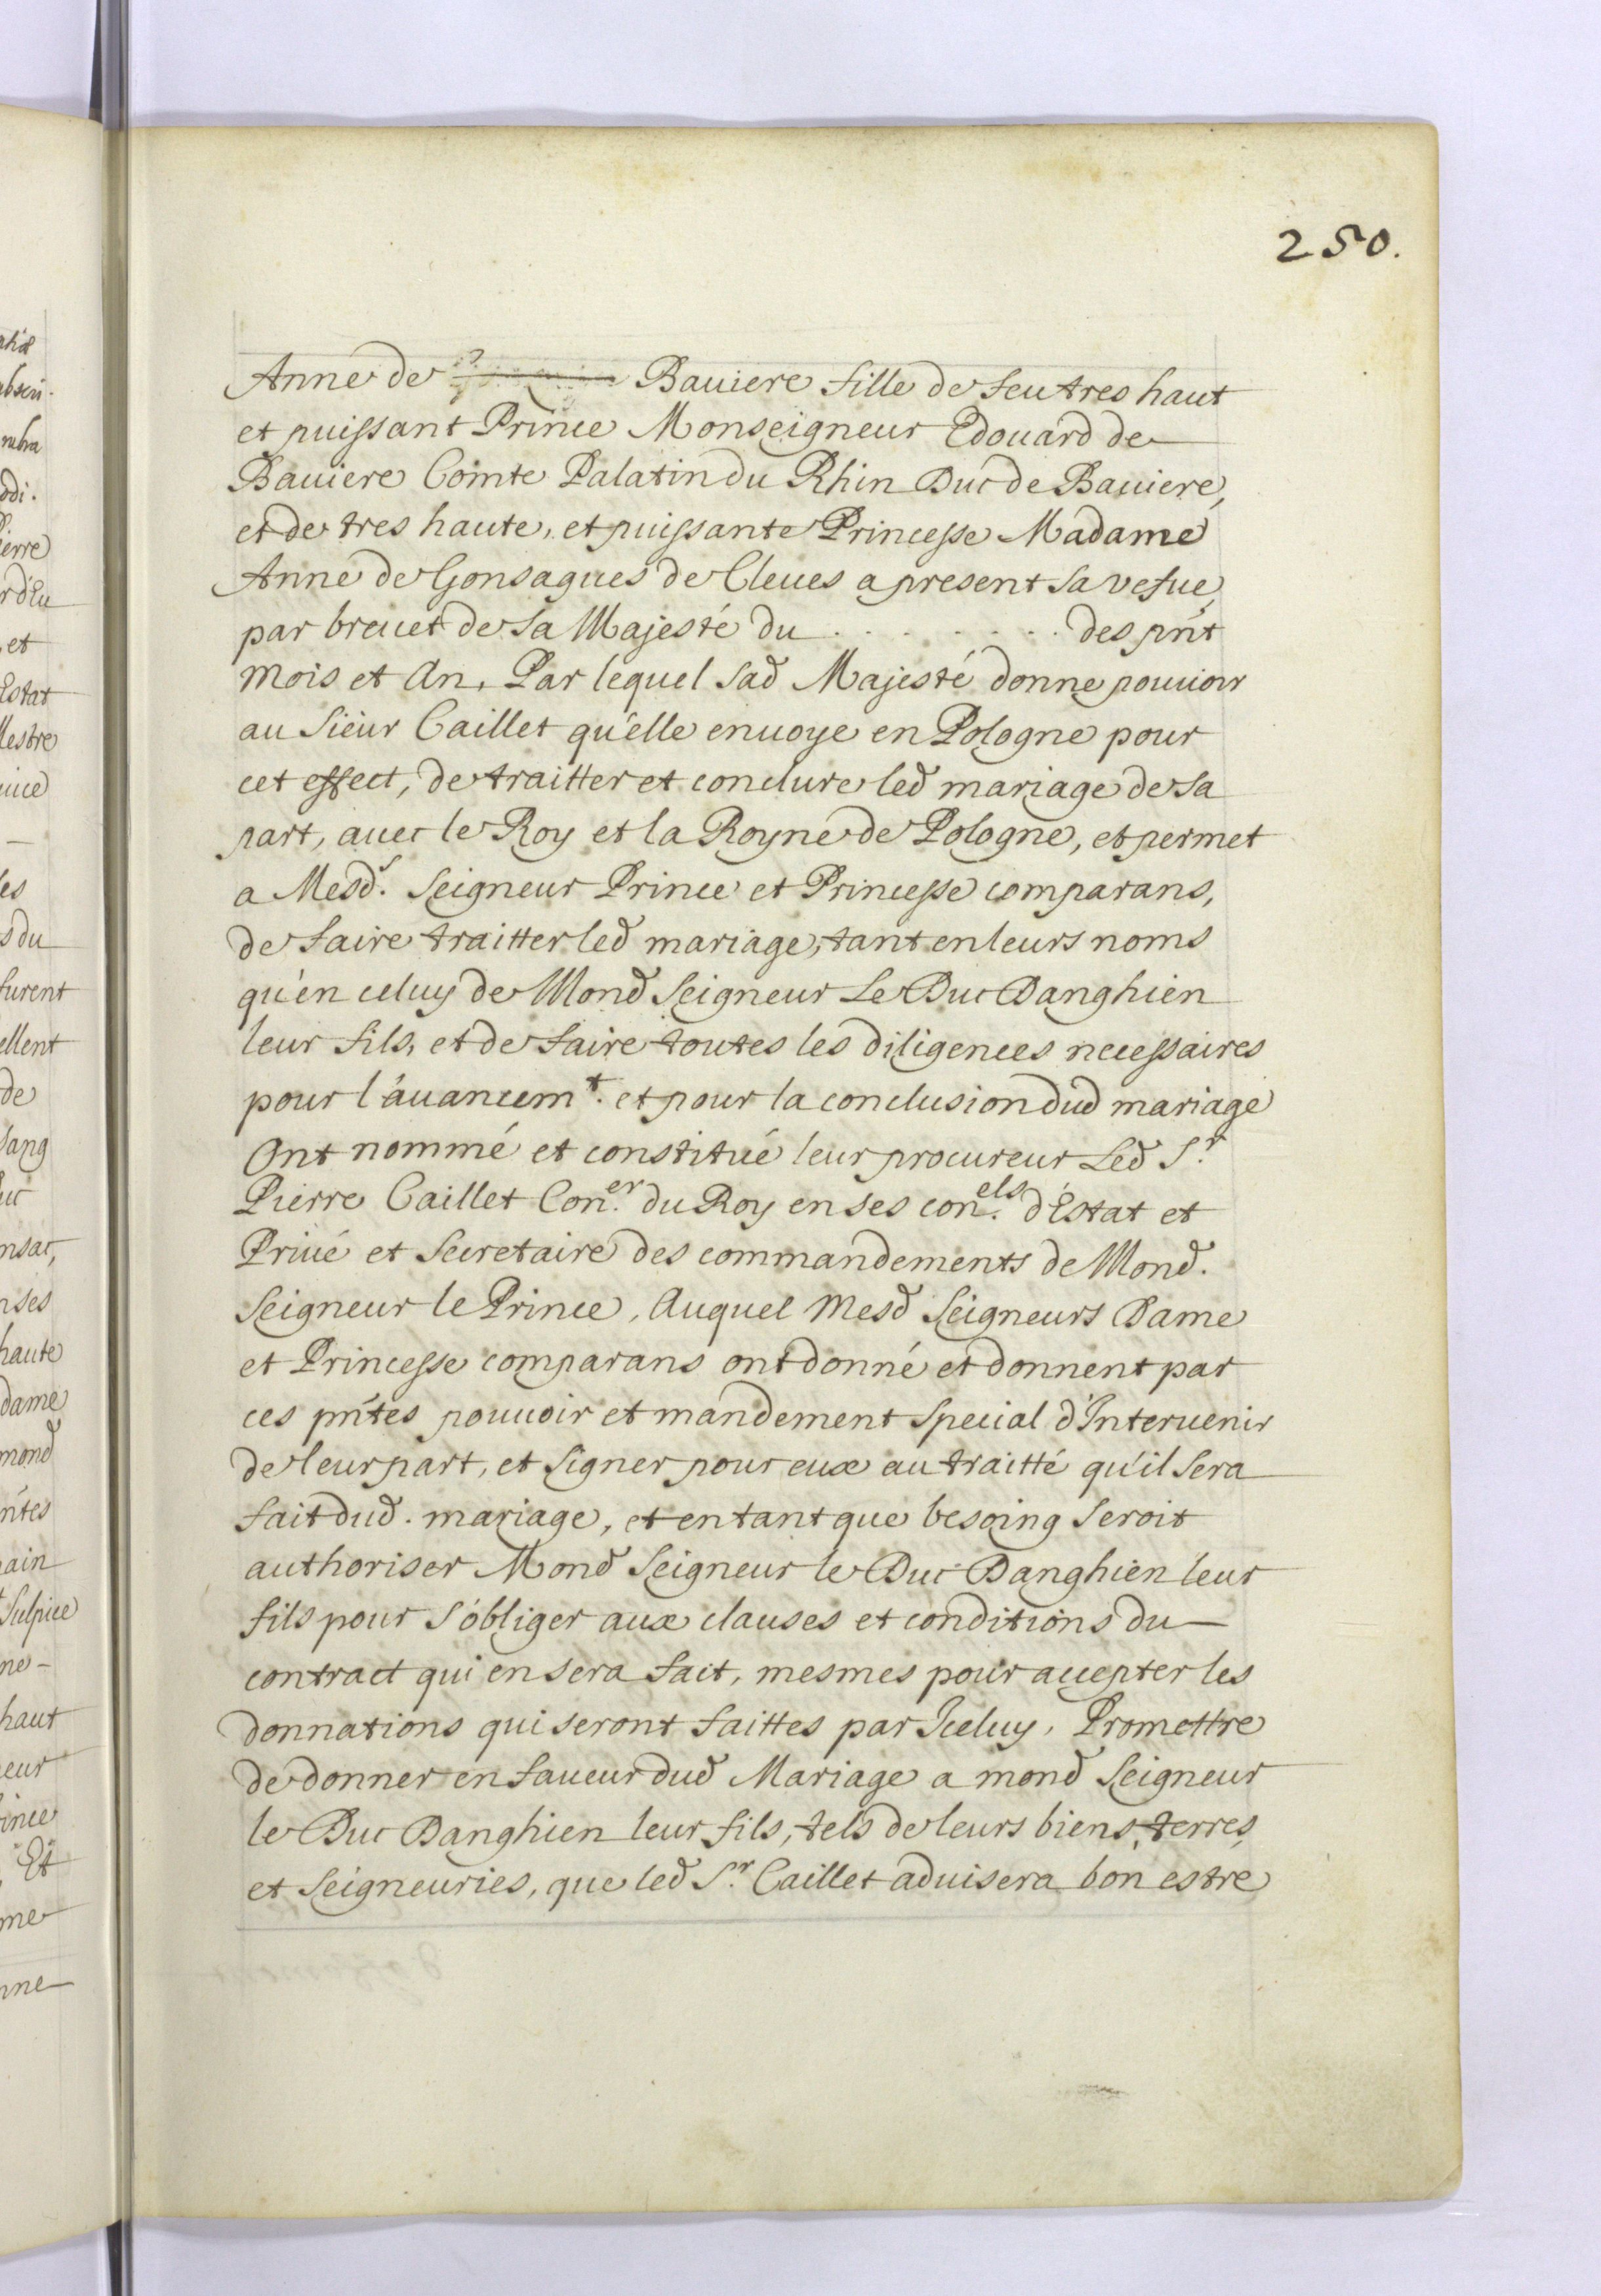 250.
Anne de Baviere fille de feu tres haut
et puissant Prince Monseigneur Edouard de
Baviere Comte Palatin du Rhin Duc de Baviere,
et de tres haute, et puissante Princesse Madame
Anne de Gonsagues de Cleues a present sa vefue,
par breuet de Sa Majesté du . . . . . . . . des pn̄t
mois et an, Par lequel sad Majesté donne pouuoir
au Sieur Caillet qu'elle enuoye en Pologne pour
cet effect, de traitter et conclure led mariage de sa
part, auec le Roy et la Royne de Pologne, et permet
a Mesd.ˢ Seigneur Prince et Princesse comparans,
de faire traitter led mariage, tant en leurs noms
qu'en celuy de Mond Seigneur Le Duc Danghien
leur fils, et de faire toutes les diligences necessaires
pour l'auancemᵗ. et pour la conclusion dud mariage
Ont nommé et constitué leur procureur Led Sʳ.
Pierre Caillet Con.ᵉʳ du Roy en ses con.ᵉˡˢ d'Estat et
Priué et Secretaire des commandements de Mond.
Seigneur le Prince, Auquel Mesd Seigneurs Dame
et Princesse comparans ont donné et donnent par
ces pn̄tes pouuoir et mandement special d'Interuenir
de leur part, et signer pour eux au traitté qu'il sera
fait dud. mariage, et en tant que besoing seroit
authoriser Mond Seigneur le Duc Danghien leur
fils pour s'obliger aux clauses et conditions du
contract qui en sera fait, mesmes pour accepter les
donnations qui seront faittes par Iceluy, Promettre
de donner en faueur dud Mariage a mond Seigneur
le Duc Danghien leur fils, tels de leurs biens, terres,
et Seigneuries, que led Sʳ. Caillet aduisera bon estre